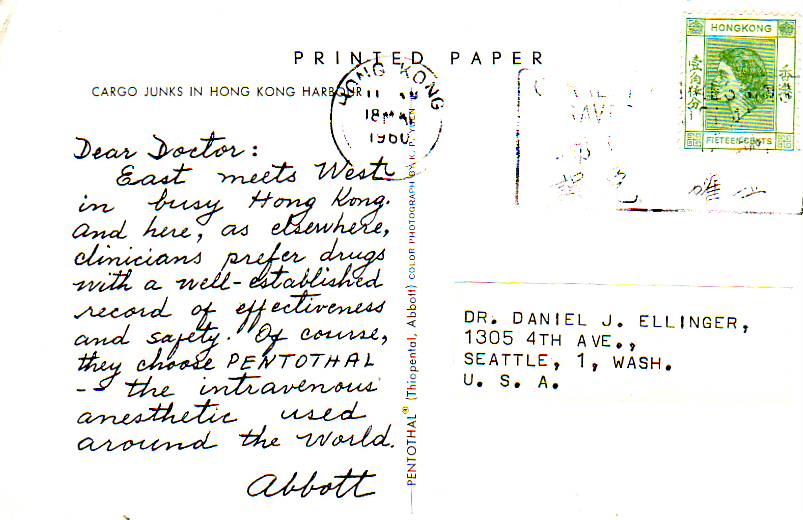 PRINTED PAPER
CARGO JUNKS IN HONG KONG HARBOUR
HONG KONG
11 AM
18 MA
1960
HONGKONG
香港
壹角伍分
FIFTEEN CENTS
Dear Doctor:
East meets West
in busy Hong Kong.
And here, as elsewhere,
clinicians prefer drugs
with a well-established
record of effectiveness
and safety. Of course,
they choose PENTOTHAL
- the intravenous
anesthetic used
around the World.
Abbott
PENTOTHAL® (Thiopental, Abbott) COLOR PHOTOGRAPH BY K.
DR. DANIEL J. ELLINGER,
1305 4TH AVE.,
SEATTLE, 1, WASH.
U. S. A.